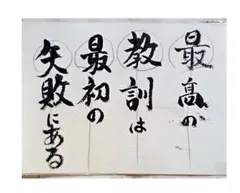 最高の
教訓は
最初の
失敗にある